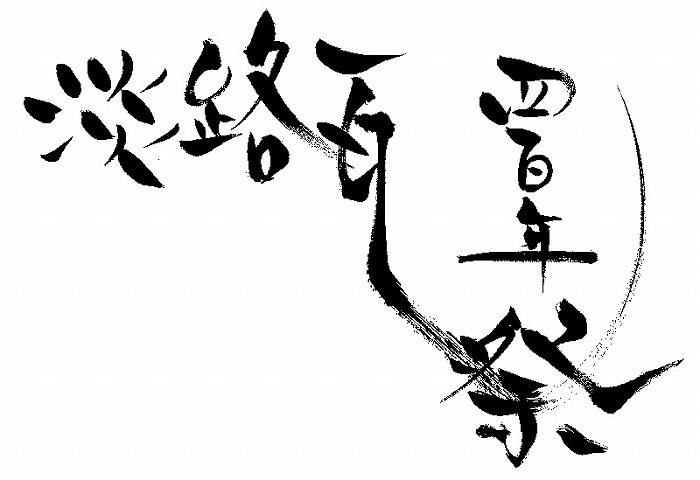 淡路瓦
四百年
祭